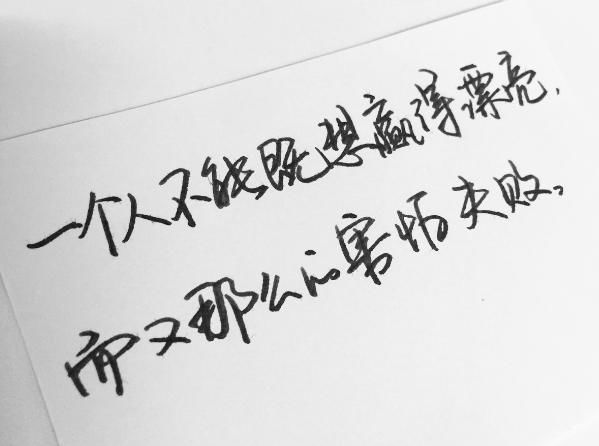 一个人不能既想赢得漂亮，
而又那么的害怕失败。